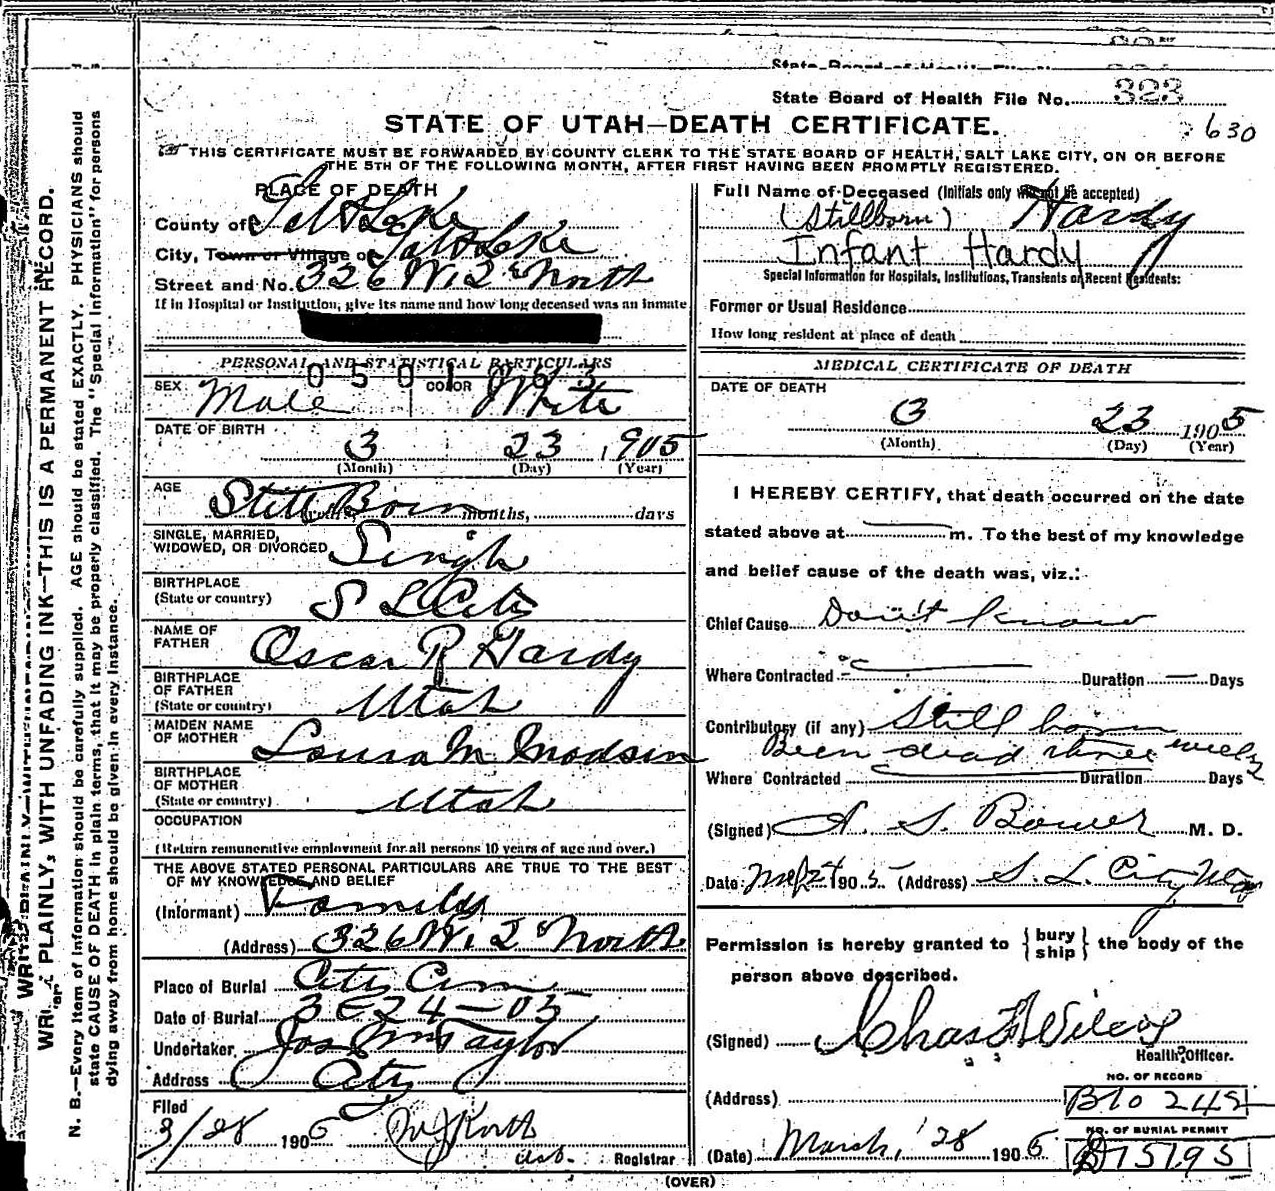 State Board of Health File No. 323
630
STATE OF UTAH—DEATH CERTIFICATE.
THIS CERTIFICATE MUST BE FORWARDED BY COUNTY CLERK TO THE STATE BOARD OF HEALTH, SALT LAKE CITY, ON OR BEFORE
THE 5TH OF THE FOLLOWING MONTH, AFTER FIRST HAVING BEEN PROMPTLY REGISTERED.
WRITE PLAINLY, WITH UNFADING INK—THIS IS A PERMANENT RECORD.
N. B.—Every item of information should be carefully supplied. AGE should be stated EXACTLY. PHYSICIANS should
state CAUSE OF DEATH in plain terms, that it may be properly classified. The "Special Information" for persons
dying away from home should be given in every instance.
PLACE OF DEATH
County of Salt Lake
City, Town or Village of Salt Lake
Street and No. 326 W. 2 North
If in Hospital or Institution, give its name and how long deceased was an inmate
PERSONAL AND STATISTICAL PARTICULARS
SEX Male COLOR White
DATE OF BIRTH
3 23 1905
(Month) (Day) (Year)
AGE Still Born months, days
SINGLE, MARRIED,
WIDOWED, OR DIVORCED Single
BIRTHPLACE
(State or country) S L City
NAME OF
FATHER Oscar R Hardy
BIRTHPLACE
OF FATHER
(State or country) Utah
MAIDEN NAME
OF MOTHER Laura M Madsen
BIRTHPLACE
OF MOTHER
(State or country) Utah
OCCUPATION
(Return remunerative employment for all persons 10 years of age and over.)
THE ABOVE STATED PERSONAL PARTICULARS ARE TRUE TO THE BEST
OF MY KNOWLEDGE AND BELIEF
(Informant) Family
(Address) 326 W. 2 North
Place of Burial City Cem
Date of Burial 3-24-05
Undertaker Jos Wm Taylor
Address City
Filed
3/28 1905
Registrar
Full Name of Deceased (Initials only will not be accepted)
(Stillborn) Hardy
Infant Hardy
Special Information for Hospitals, Institutions, Transients or Recent Residents:
Former or Usual Residence
How long resident at place of death
MEDICAL CERTIFICATE OF DEATH
DATE OF DEATH
3 23 1905
(Month) (Day) (Year)
I HEREBY CERTIFY, that death occurred on the date
stated above at m. To the best of my knowledge
and belief cause of the death was, viz.:
Chief Cause Don't know
Where Contracted Duration — Days
Contributory (if any) Still born
Been dead three weeks
Where Contracted Duration Days
(Signed) A. S. Bower M. D.
Date 1905 (Address) S. L. City
Permission is hereby granted to { bury ship } the body of the
person above described.
(Signed) Chas Wilcox
Health Officer.
(Address)
NO. OF RECORD
B10242
(Date) March, 28 1905
NO. OF BURIAL PERMIT
B 15195
(OVER)